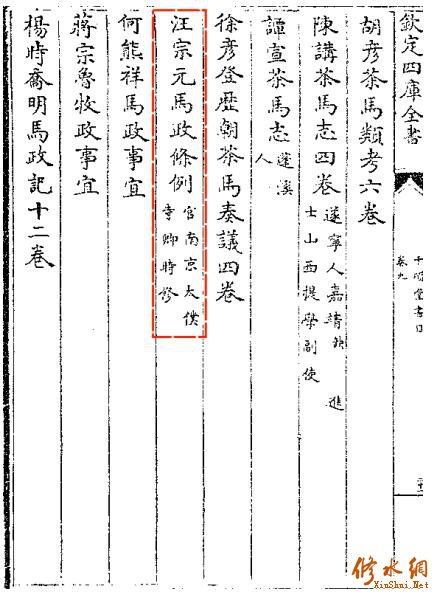 欽定四庫全書
千頃堂書目
卷九
胡彦茶馬類考六卷
陳講茶馬志四卷 遂寧人嘉靖進士山西提學副使
譚宣茶馬志 蓬溪人
徐彦登歴朝茶馬奏議四卷
汪宗元馬政條例 官南京太僕寺卿時修
何熊祥馬政事宜
蔣宗魯牧政事宜
楊時喬明馬政記十二卷
修水網
XiuShui.Net